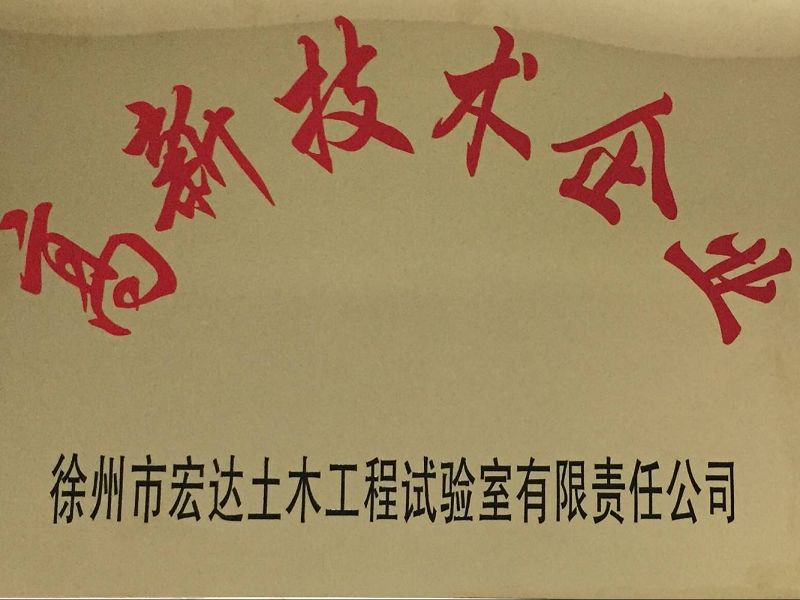 高新技术企业
徐州市宏达土木工程试验室有限责任公司